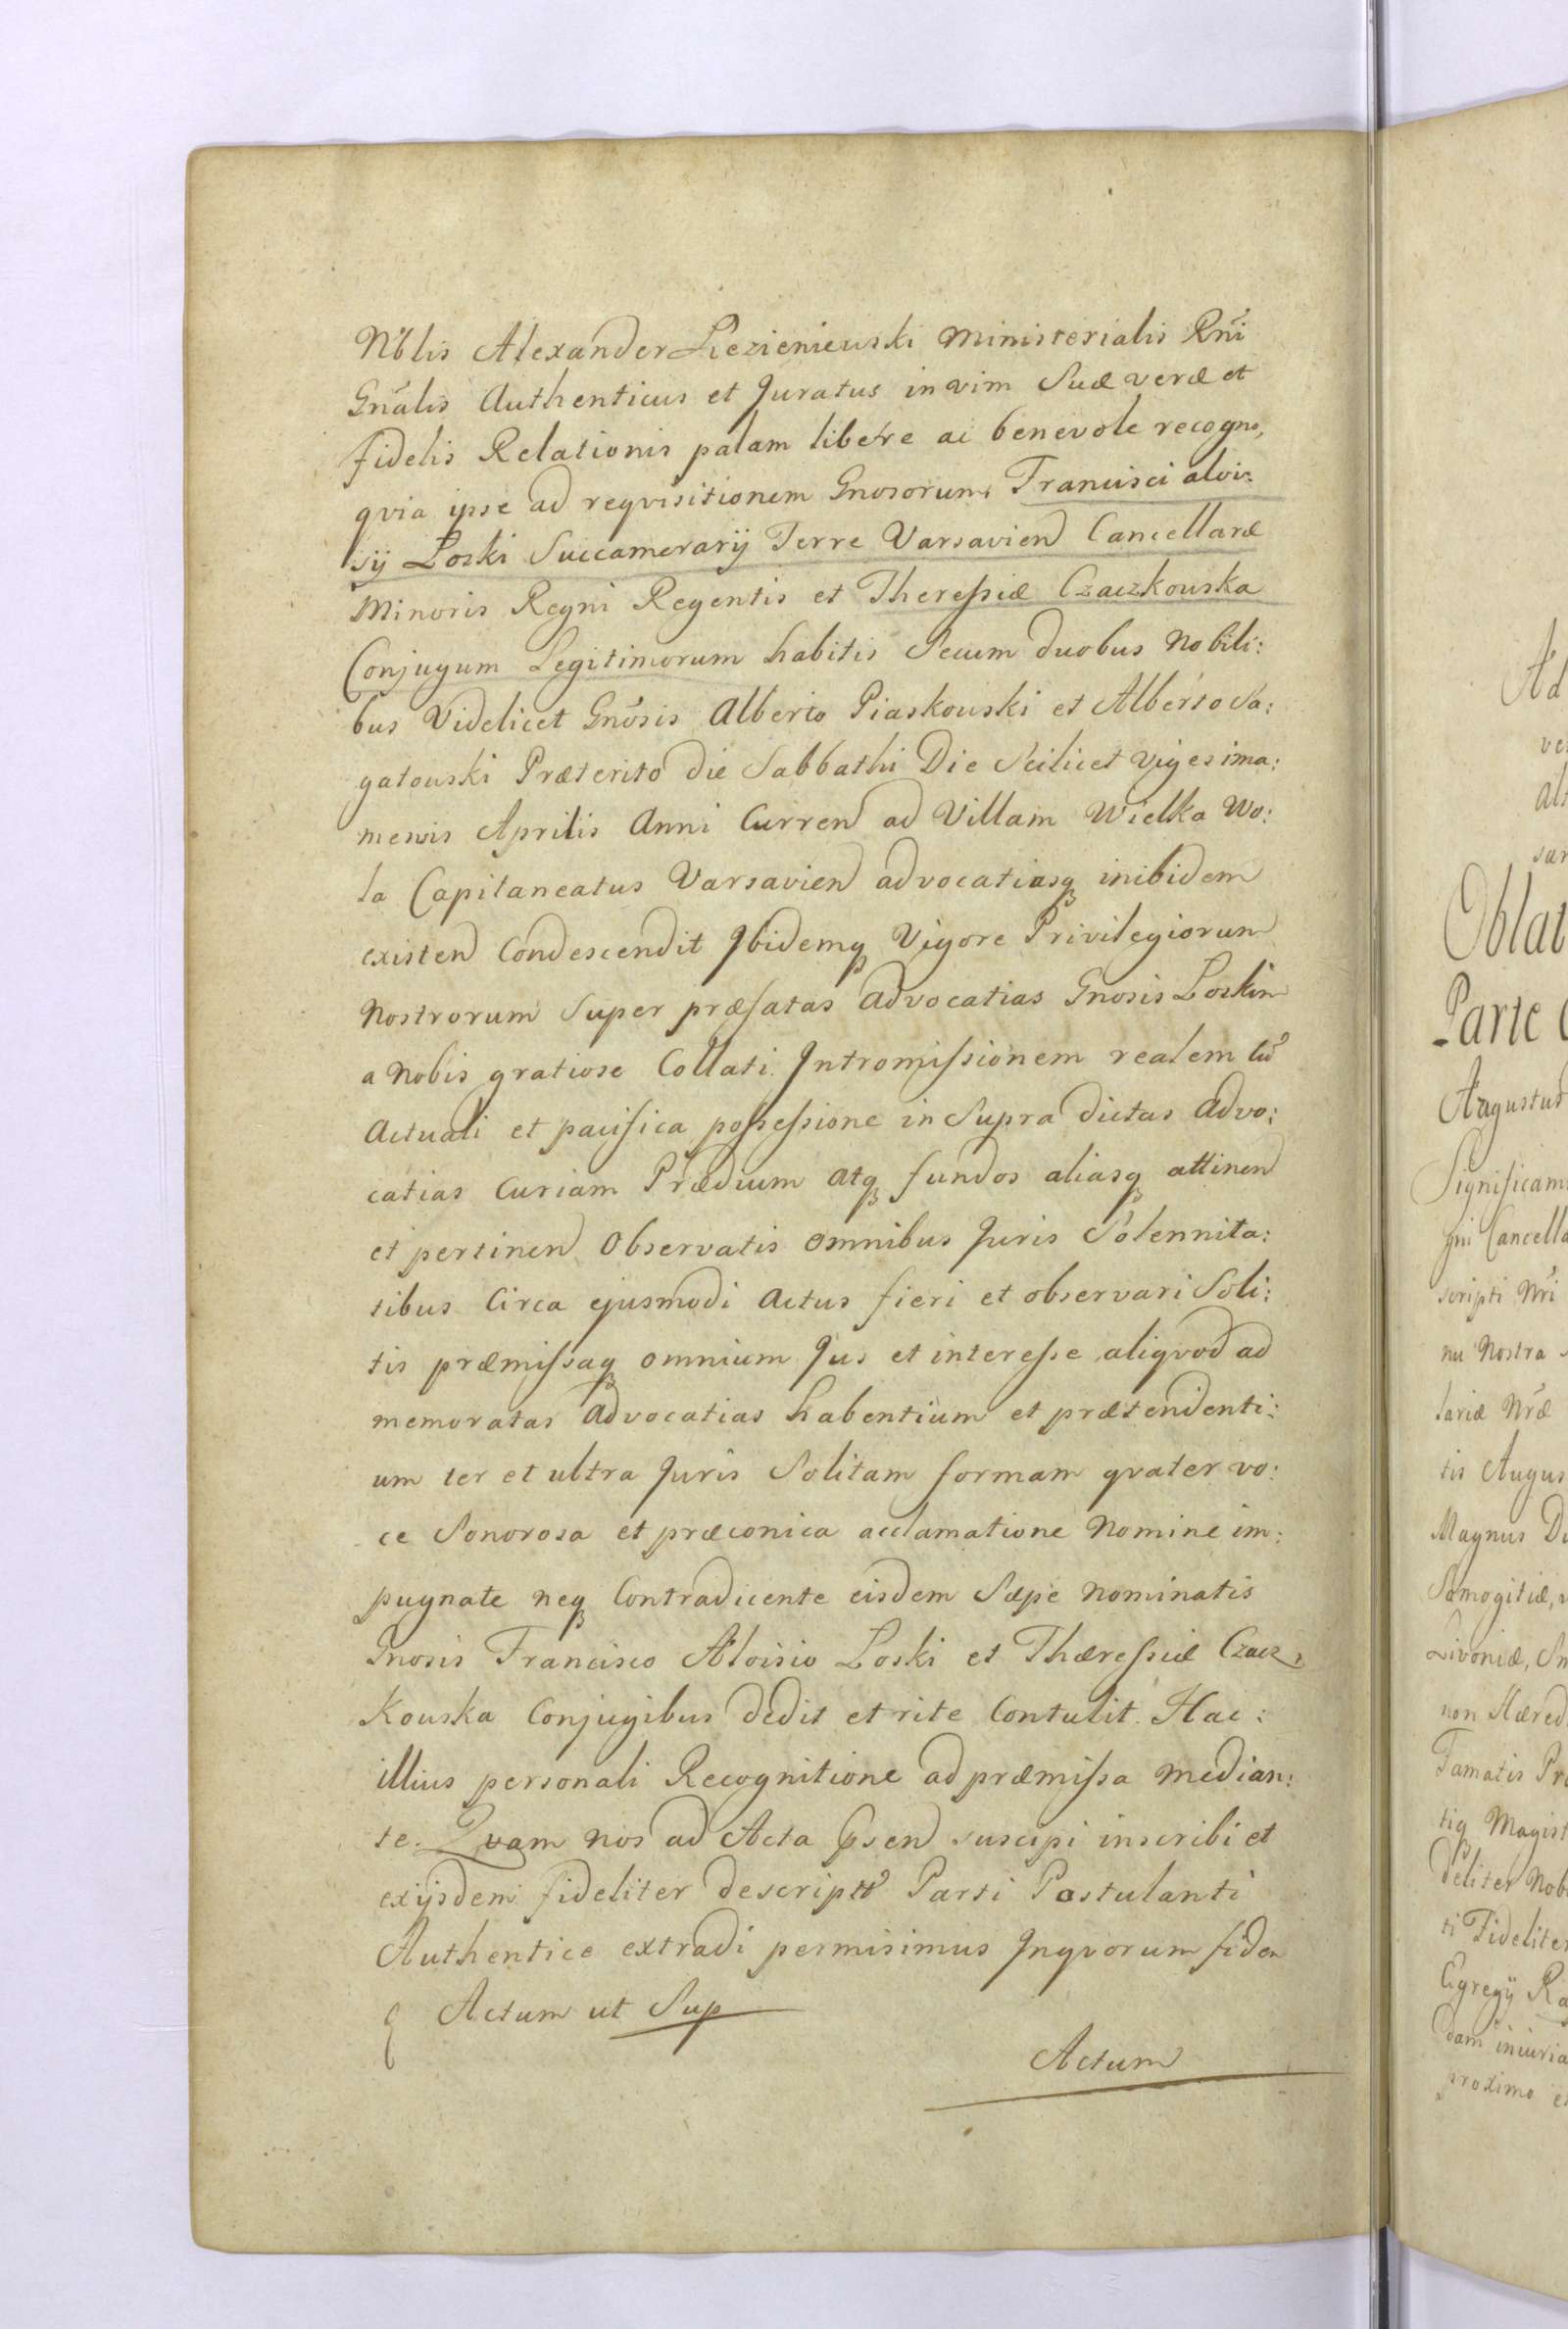 Nblis Alexander Liezieniewski Ministerialis Rni
Gnalis Authenticus et Juratus in vim Suæ veræ et
fidelis Relationis palam libere ac benevole recogno,
qvia ipse ad reqvisitionem Gnosorum Francisci aloi:
sÿ Loski Succamerarÿ Terre Varsavien Cancellaræ
Minoris Regni Regentis et Theressiæ Czaczkouska
Conjugum Legitimorum habitis Secum duobus Nobili:
bus Videlicet Gnosis Alberto Piaskouski et Alberto Sa:
gatouski Præterito die Sabbathi Die Scilicet Vigesima:
mensis Aprilis Anni Curren ad Villam Wielka Wo:
la Capitaneatus Varsavien advocatiasq inibidem
existen Condescendit Jbidemq Vigore Privilegiorum
Nostrorum Super præfatas Advocatias Gnosis Loskim
a Nobis gratiose Collati. Jntromissionem realem cu
Actuali et pacifica possessione in Supra dictas Advo:
catias Curiam Prædium atq fundos aliasq attinen
et pertinen Observatis Omnibus Juris Solennita:
tibus Circa ejusmodi Actus fieri et observari Soli:
tis præmissaq omnium Jus et interesse aliqvod ad
memoratas Advocatias habentium et prætendenti:
um ter et ultra Juris Solitam formam qvater vo:
ce Sonorosa et præconica acclamatione Nomine im:
pugnate neq Contradicente eisdem Sæpe nominatis
Gnosis Francisco Aloisio Loski et Thæressiæ Czacz,
Kouska Conjugibus dedit et rite Contulit. Hac:
illius personali Recognitione ad præmissa median:
te. Qvam nos ad Acta Psen suscipi inscribi et
exÿsdem fideliter descript Parti Postulanti
Authentice extradi permisimus Jnqvorum fidem
Actum ut Sup
Actum
Ad
Oblat
Parte
Augustus
Significam
gni Cancella
scripti Nri
nu Nostra
lariæ Nræ
tis Augus
Magnus Du
Samogitiæ,
Livoniæ, Sm
non Hæred
Famatis Pr
tiq Magist
deliter Nob
ti Fideliter
Egregÿ Ra
dam iniuria
proximo